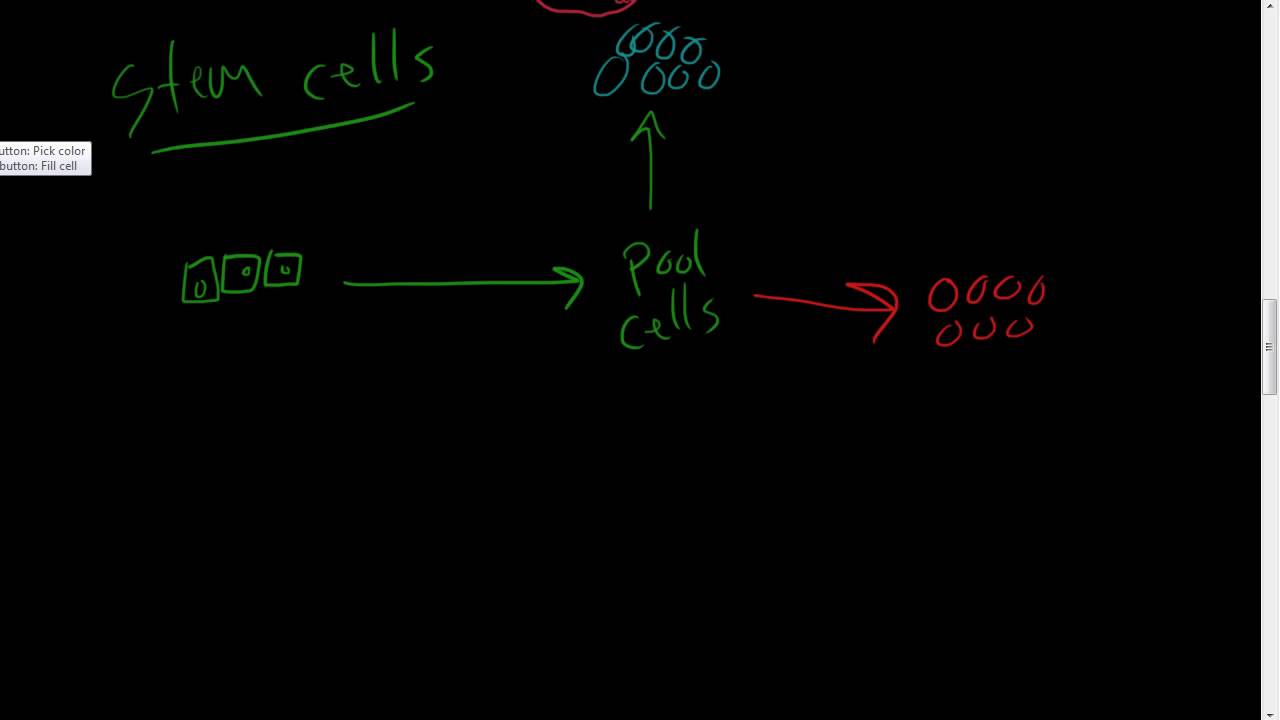 Stem cells
utton: Pick color
button: Fill cell
Pool
cells